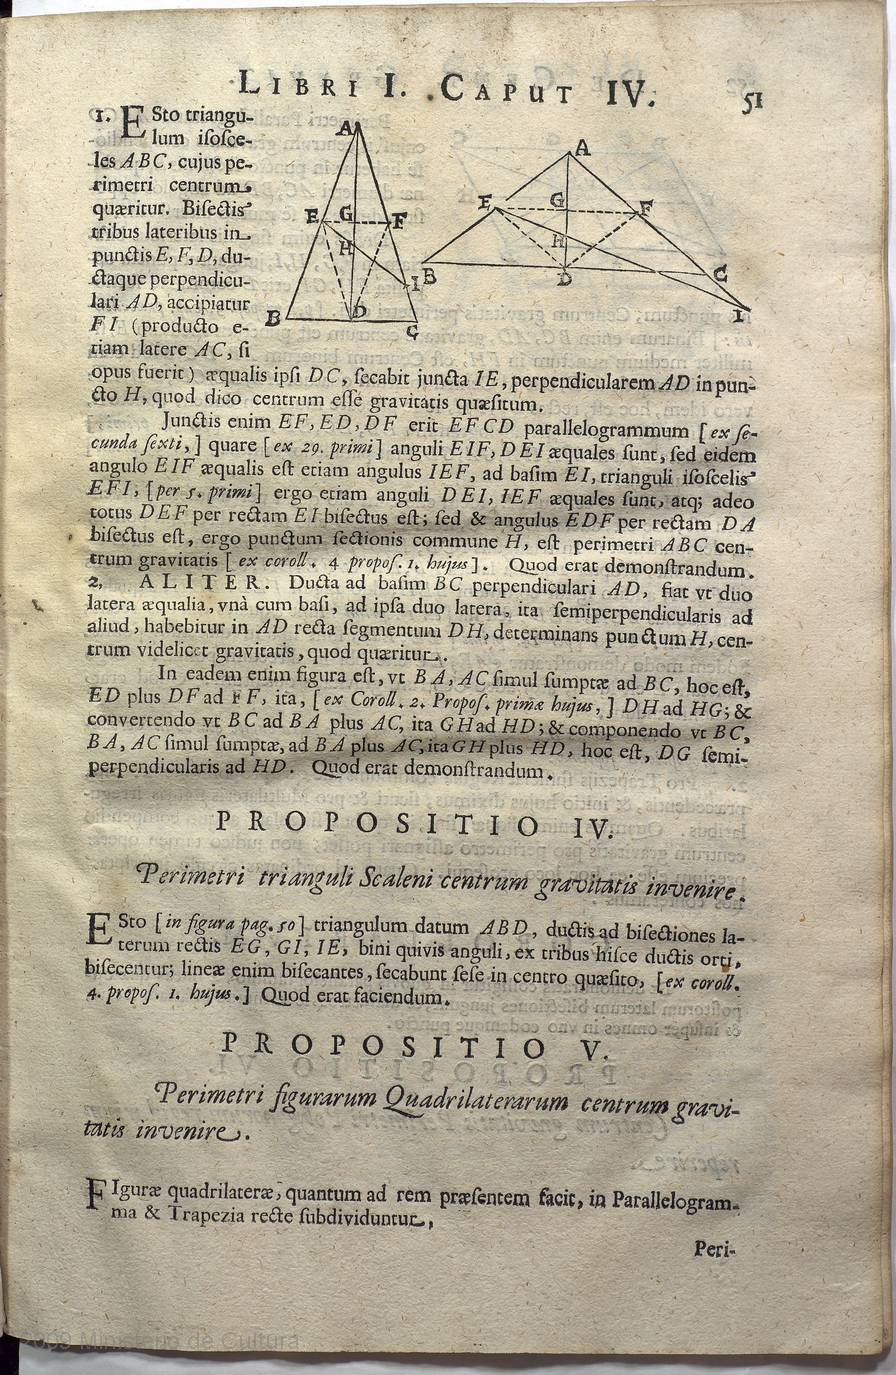 LIBRI I. CAPUT IV. 51
1. ESto triangu-
lum iſoſce-
les ABC, cujus pe-
rimetri centrum
quæritur. Biſectis
tribus lateribus in
punctis E, F, D, du-
ctaque perpendicu-
lari AD, accipiatur
FI (producto e-
tiam latere AC, ſi
opus fuerit) æqualis ipſi DC, ſecabit juncta IE, perpendicularem AD in pun-
cto H, quod dico centrum eſſe gravitatis quæſitum.
Junctis enim EF, ED, DF erit EFCD parallelogrammum [ex ſe-
cunda ſexti,] quare [ex 29. primi] anguli EIF, DEI æquales ſunt, ſed eidem
angulo EIF æqualis eſt etiam angulus IEF, ad baſim EI, trianguli iſoſcelis
EFI, [per 5. primi] ergo etiam anguli DEI, IEF æquales ſunt, atq; adeo
totus DEF per rectam EI biſectus eſt; ſed & angulus EDF per rectam DA
biſectus eſt, ergo punctum ſectionis commune H, eſt perimetri ABC cen-
trum gravitatis [ex coroll. 4 propoſ. 1. hujus]. Quod erat demonſtrandum.
2, ALITER. Ducta ad baſim BC perpendiculari AD, fiat vt duo
latera æqualia, vnà cum baſi, ad ipſa duo latera, ita ſemiperpendicularis ad
aliud, habebitur in AD recta ſegmentum DH, determinans punctum H, cen-
trum videlicet gravitatis, quod quæritur.
In eadem enim figura eſt, vt BA, AC ſimul ſumptæ ad BC, hoc eſt,
ED plus DF ad FF, ita, [ex Coroll. 2. Propoſ. primæ hujus,] DH ad HG; &
convertendo vt BC ad BA plus AC, ita GH ad HD; & componendo vt BC,
BA, AC ſimul ſumptæ, ad BA plus AC, ita GH plus HD, hoc eſt, DG ſemi-
perpendicularis ad HD. Quod erat demonſtrandum.
PROPOSITIO IV.
Perimetri trianguli Scaleni centrum gravitatis invenire.
ESto [in figura pag. 50] triangulum datum ABD, ductis ad biſectiones la-
terum rectis EG, GI, IE, bini quivis anguli, ex tribus hiſce ductis orti,
biſecentur; lineæ enim biſecantes, ſecabunt ſeſe in centro quæſito, [ex coroll.
4. propoſ. 1. hujus.] Quod erat faciendum.
PROPOSITIO V.
Perimetri figurarum Quadrilaterarum centrum gravi-
tatis invenire.
FIguræ quadrilateræ, quantum ad rem præſentem facit, in Parallelogram-
ma & Trapezia recte ſubdividuntur,
Peri-
A
E G F
H
I
B D C
A
E G F
H
B D C
I
2009 Ministerio de Cultura